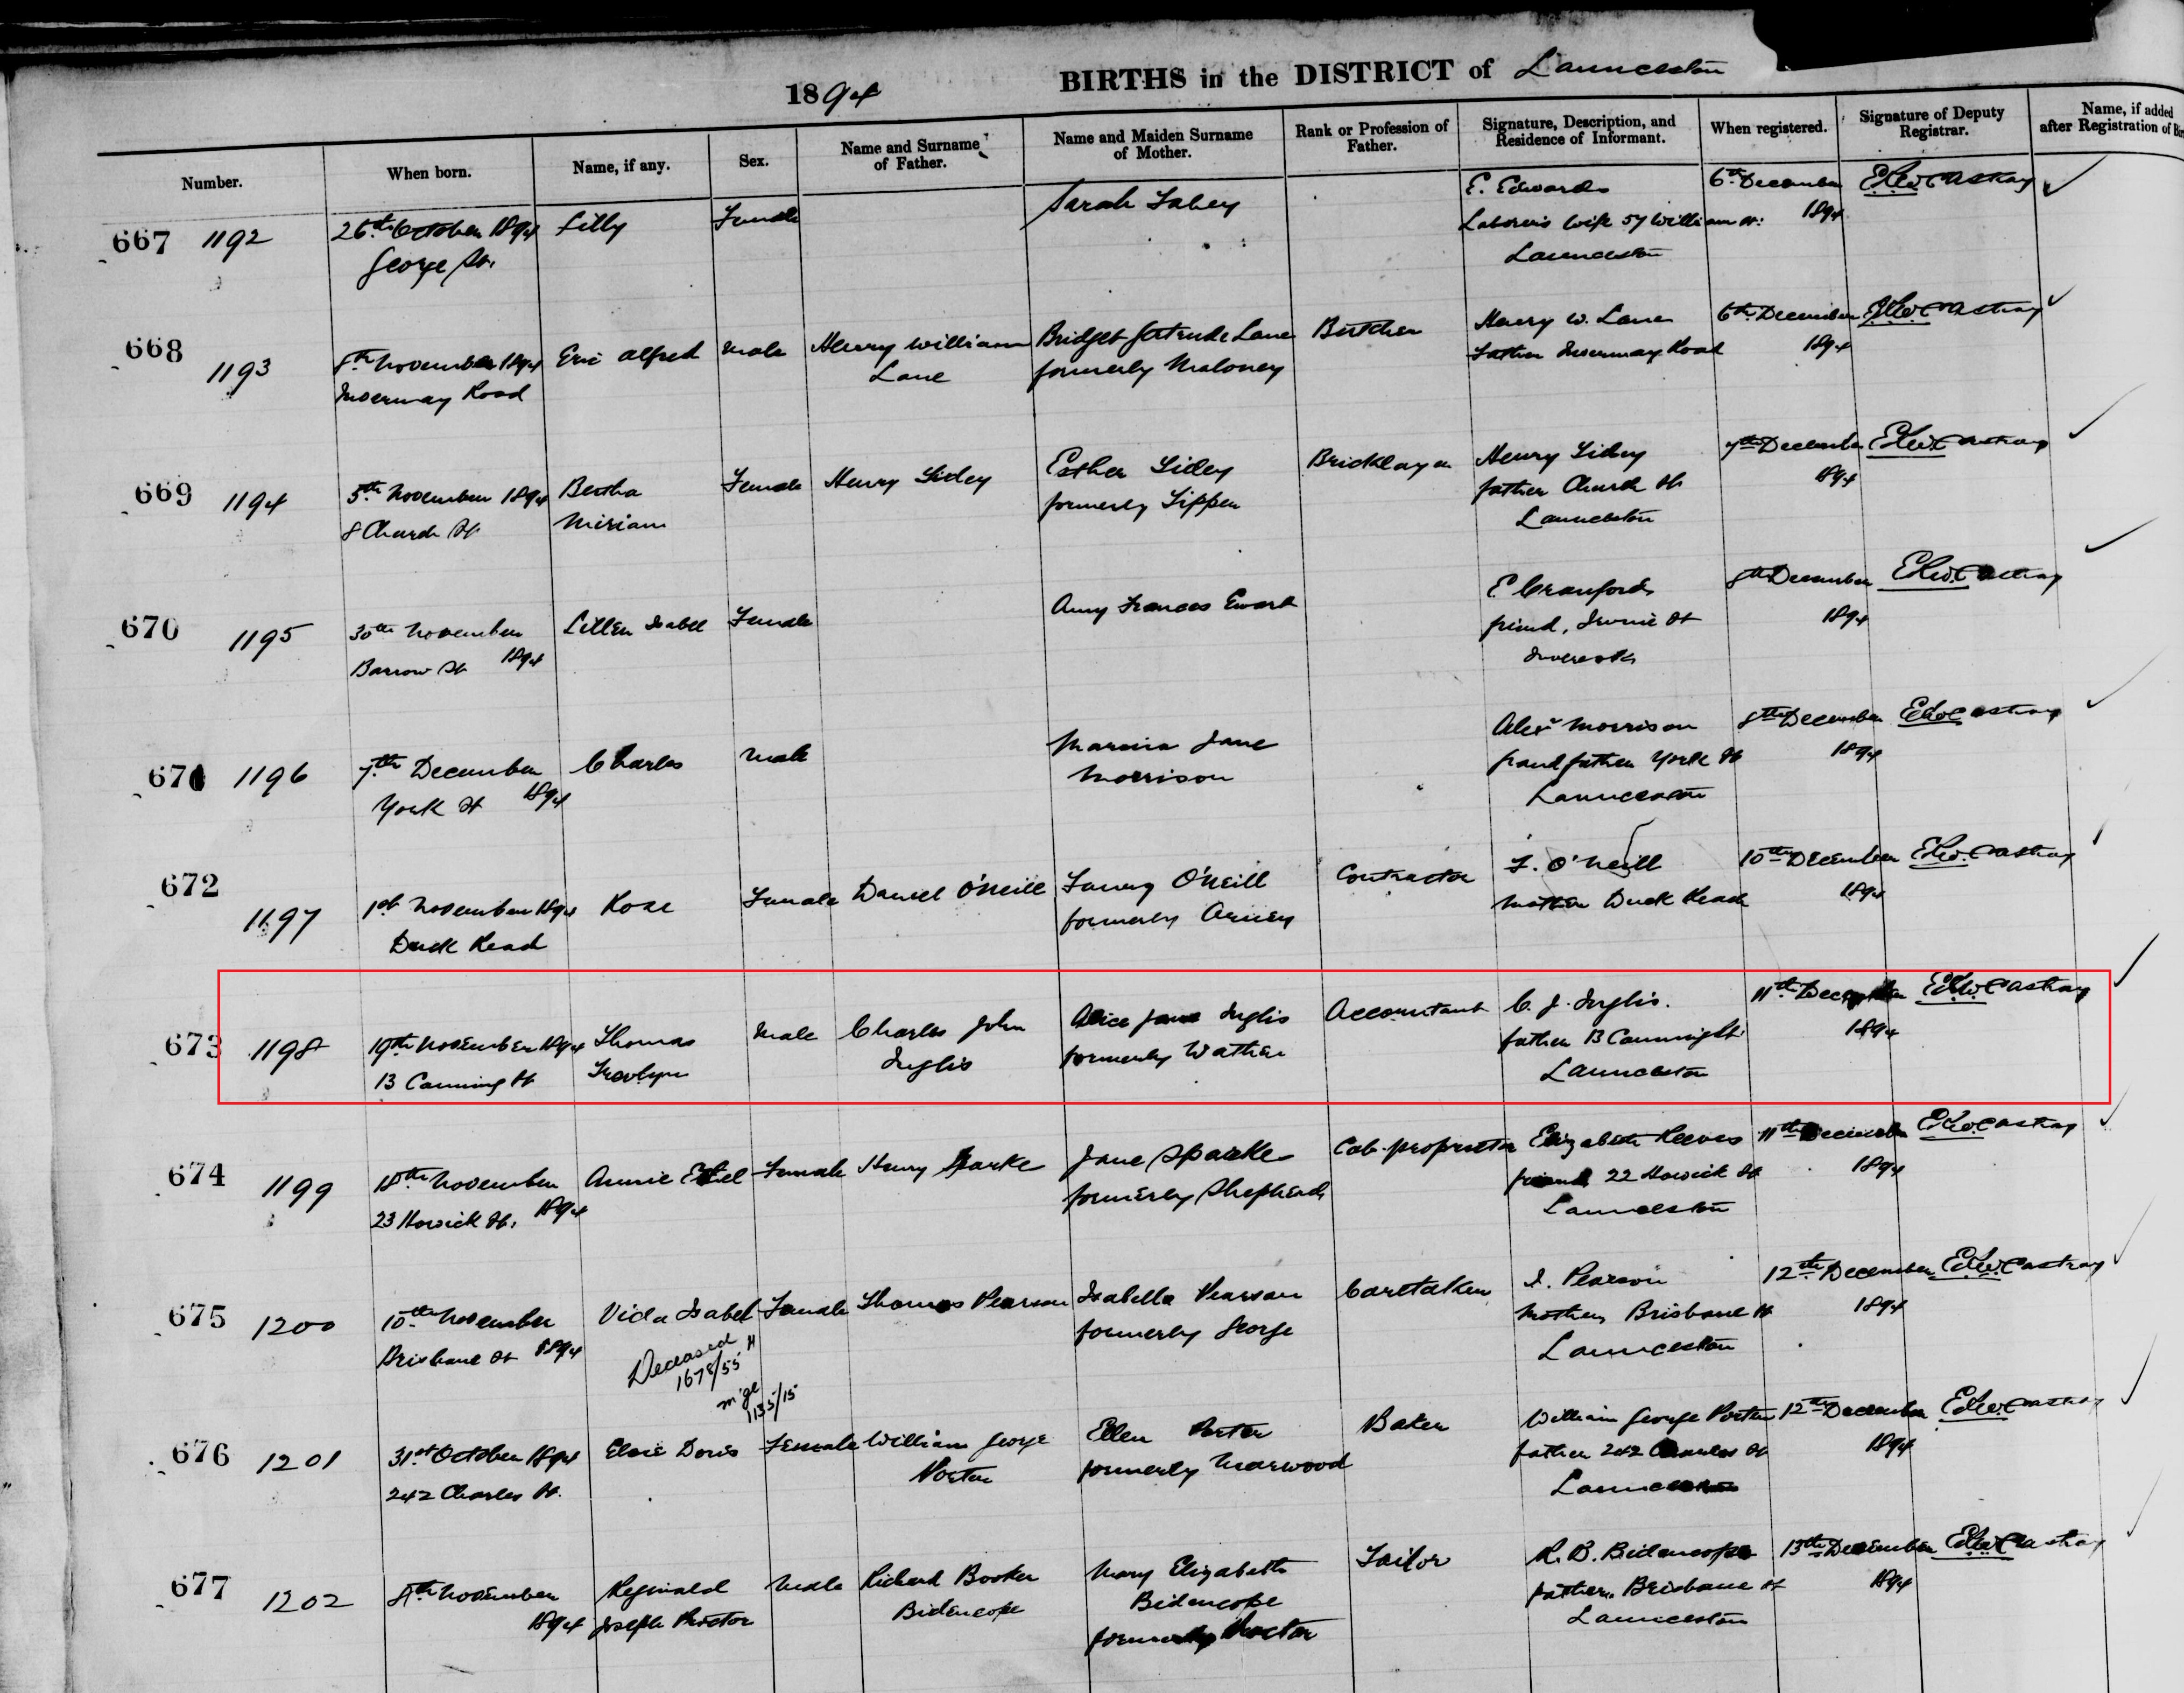 1894 BIRTHS in the DISTRICT of Launceston
Number. When born. Name, if any. Sex. Name and Surname of Father. Name and Maiden Surname of Mother. Rank or Profession of Father. Signature, Description, and Residence of Informant. When registered. Signature of Deputy Registrar. Name, if added after Registration of
667 1192 26th October 1894 Lilly Female Sarah Fahey E. Edwards 6th December
George St. Laborer's wife 57 William St. 1894
Launceston
668 1193 8th November 1894 Eric Alfred Male Henry William Bridget Gertrude Lane Butcher Henry W. Lane 6th December
Invermay Road Lane formerly Maloney father Invermay Road 1894
669 1194 5th November 1894 Bertha Female Henry Sidey Esther Sidey Bricklayer Henry Sidey 7th December
8 Church St Miriam formerly father Church St 1894
Launceston
670 1195 30th November Lillen Isabel Female Amy Frances Ewart E Cranford 8th December
Barrow St 1894 friend, St 1894
Inveresk
671 1196 7th December Charles Male Jane Alexr Morrison 8th December
York St 1894 Morrison grandfather York St 1894
Launceston
672 1197 1st November 1894 Rose Female Daniel O'Neill Fanny O'Neill Contractor F. O'Neill 10th December
Duck Reach formerly mother Duck Reach 1894
673 1198 19th November 1894 Thomas Male Charles John Alice Jane Inglis Accountant C. J. Inglis. 11th December
13 Canning St Trevlyn Inglis formerly Wathen father 13 Canning St 1894
Launceston
674 1199 18th November Annie Ethel Female Henry Sparke Jane Sparke Cab proprietor Elizabeth Reeves 11th December
23 Howick St. 1894 formerly Shepherd friend 22 Howick St 1894
Launceston
675 1200 10th November Vida Isabel Female Thomas Pearson Isabella Pearson Caretaker I. Pearson 12th December
Brisbane St 1894 formerly George mother Brisbane St 1894
Deceased Launceston
1678/55
1135/15
676 1201 31st October 1894 Elsie Doris Female William George Ellen Porter Baker William George Porter 12th December
242 Charles St. Porter formerly Marwood father 242 Charles St 1894
Launceston
677 1202 8th November Reginald Male Richard Booker Mary Elizabeth Tailor R. B. Bidencope 13th December
1894 Joseph Proctor Bidencope Bidencope father Brisbane St 1894
formerly Proctor Launceston